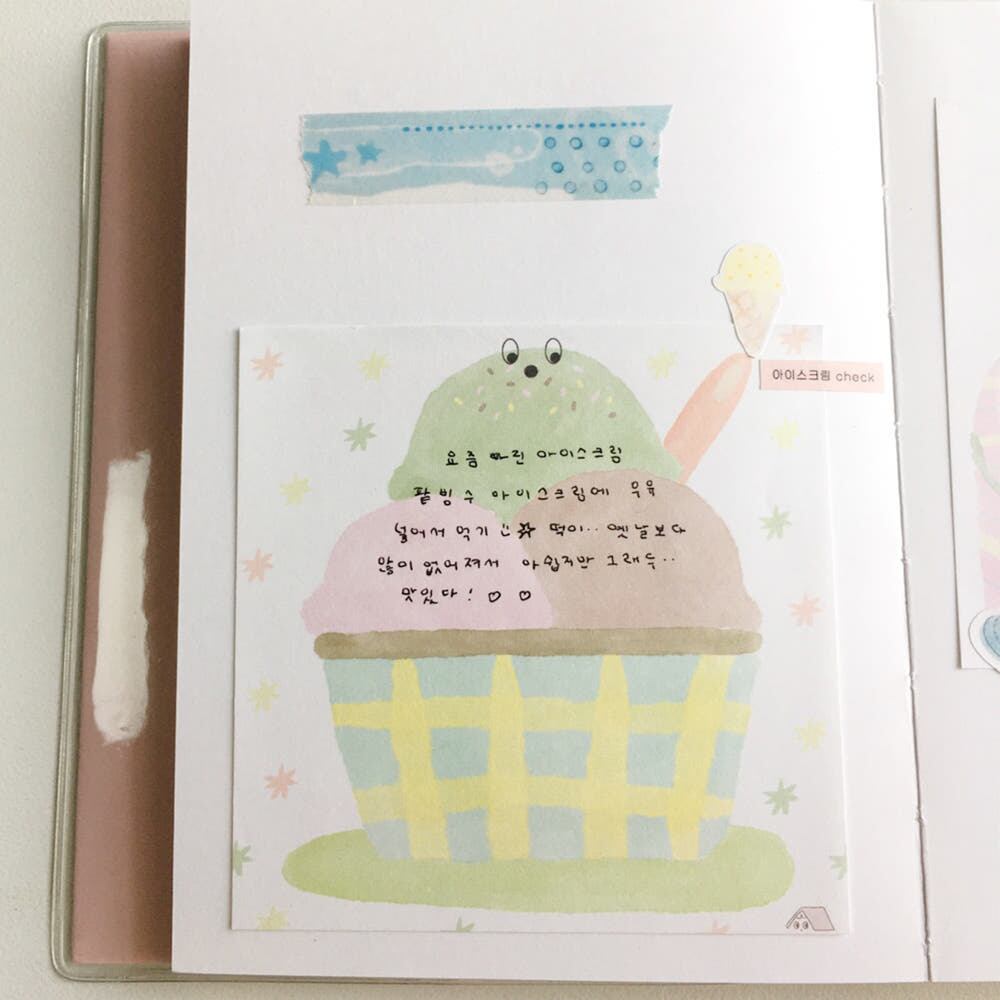 아이스크림 check
요즘 빠진 아이스크림
팥빙수 아이스크림에 우유
넣어서 먹기 !! ☆ 떡이.. 옛날보다
많이 없어져서 아쉽지만 그래두..
맛있다! ♡ ♡